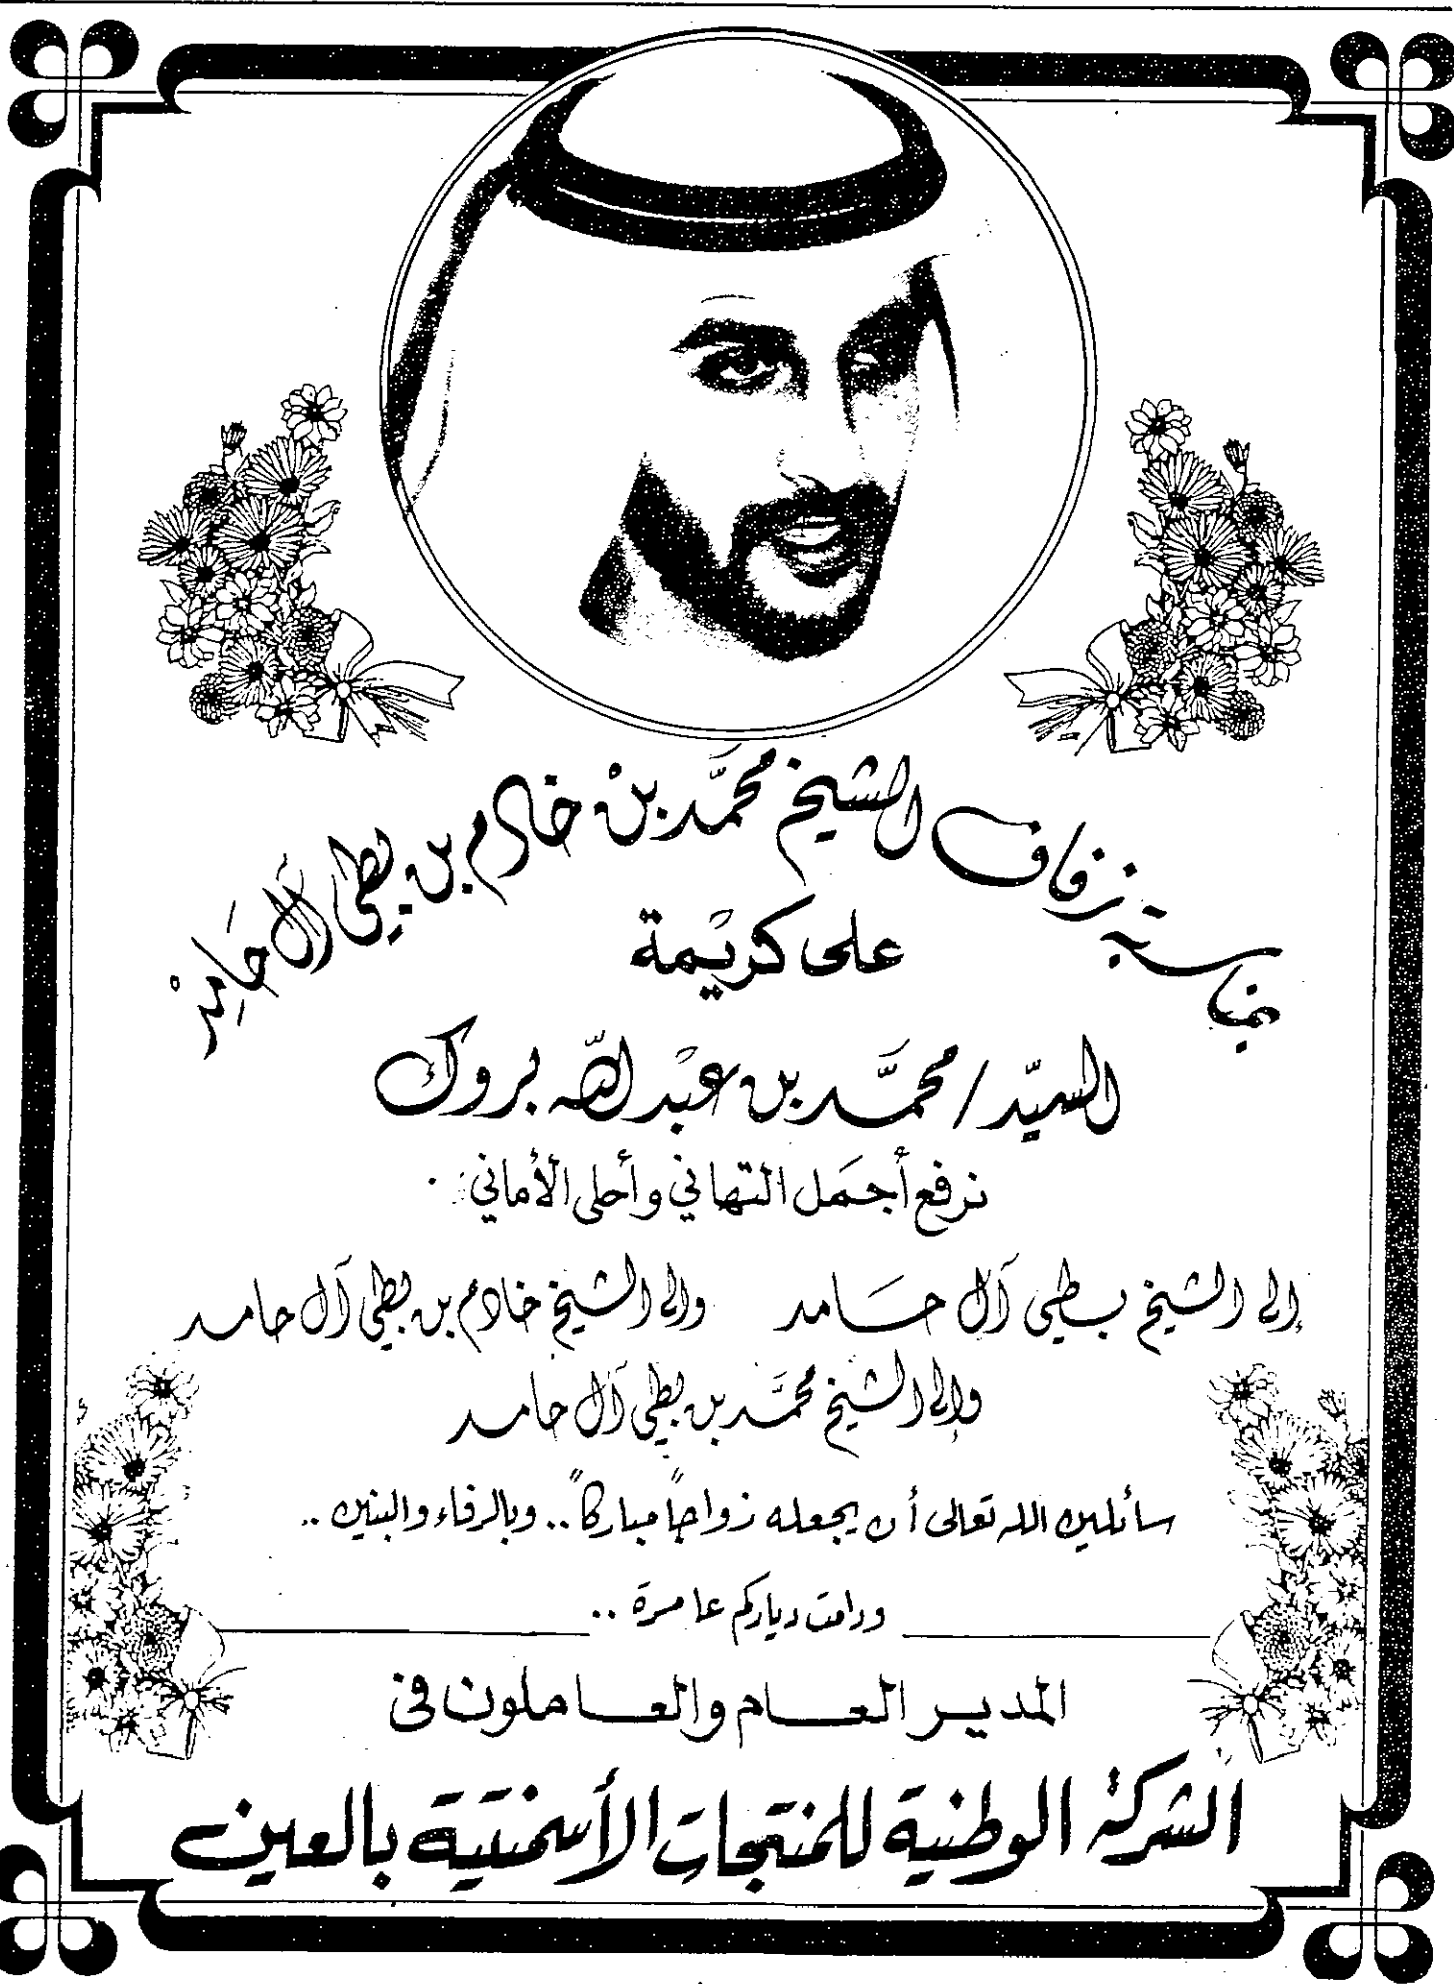 بمناسبة زفاف الشيخ محمَّد بنْ خادم بن بطي آل حَامِدْ
على كريْمة
السيّد / محمَّد بن عبْد اللّه بروك
نرفع أجمَل التهاني وأحلى الأماني .
إلى الشيخ بـطي آل حـامد وإلى الشيخ خادم بن بطي آل حامد
وإلى الشيخ محمَّد بن بطي آل حامد
سائلين الله تعالى أن يجعله زواجاً مباركاً .. وبالرفاء والبنين ..
ودامت دياركم عامرة ..
المديـر العـام والعـاملون فى
الشركة الوطنية للمنتجات الأسمنتية بالعين